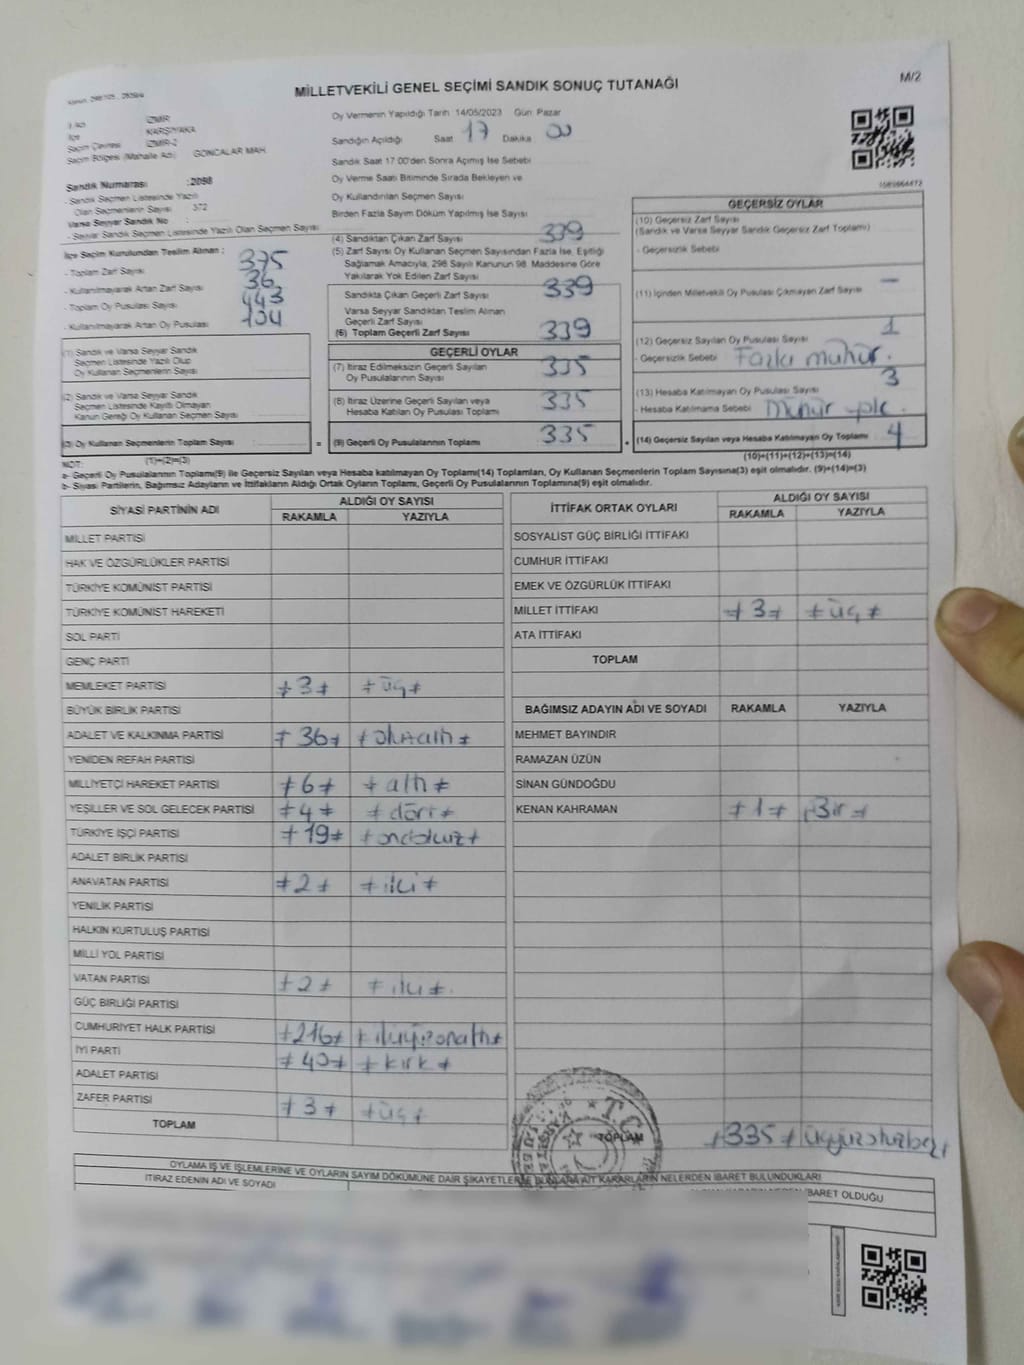 MİLLETVEKİLİ GENEL SEÇİMİ SANDIK SONUÇ TUTANAĞI
M/2
İli Adı İZMİR
İlçe KARŞIYAKA
Seçim Çevresi İZMİR-2
Seçim Bölgesi (Mahalle Adı) GONCALAR MAH.
Sandık Numarası :2098
- Sandık Seçmen Listesinde Yazılı
Olan Seçmenlerin Sayısı : 372
Varsa Seyyar Sandık No :
- Seyyar Sandık Seçmen Listesinde Yazılı Olan Seçmen Sayısı
İlçe Seçim Kurulundan Teslim Alınan :
- Toplam Zarf Sayısı 375
- Kullanılmayarak Artan Zarf Sayısı 36
- Toplam Oy Pusulası Sayısı 443
- Kullanılmayarak Artan Oy Pusulası 104
(1) Sandık ve Varsa Seyyar Sandık
Seçmen Listesinde Yazılı Olup
Oy Kullanan Seçmenlerin Sayısı
(2) Sandık ve Varsa Seyyar Sandık
Seçmen Listesinde Kayıtlı Olmayan
Kanun Gereği Oy Kullanan Seçmen Sayısı
(3) Oy Kullanan Seçmenlerin Toplam Sayısı =
(1)+(2)=(3)
Oy Vermenin Yapıldığı Tarih 14/05/2023 Gün Pazar
Sandığın Açıldığı Saat 17 Dakika 00
Sandık Saat 17.00'den Sonra Açımış İse Sebebi
Oy Verme Saati Bitiminde Sırada Bekleyen ve
Oy Kullandırılan Seçmen Sayısı
Birden Fazla Sayım Döküm Yapılmış İse Sayısı
(4) Sandıktan Çıkan Zarf Sayısı 339
(5) Zarf Sayısı Oy Kullanan Seçmen Sayısından Fazla İse, Eşitliği
Sağlamak Amacıyla, 298 Sayılı Kanunun 98. Maddesine Göre
Yakılarak Yok Edilen Zarf Sayısı
Sandıkta Çıkan Geçerli Zarf Sayısı 339
Varsa Seyyar Sandıktan Teslim Alınan
Geçerli Zarf Sayısı
(6) Toplam Geçerli Zarf Sayısı 339
GEÇERLİ OYLAR
(7) İtiraz Edilmeksizin Geçerli Sayılan
Oy Pusulalarının Sayısı 335
(8) İtiraz Üzerine Geçerli Sayılan veya
Hesaba Katılan Oy Pusulası Toplamı 335
(9) Geçerli Oy Pusulalarının Toplamı 335 +
GEÇERSİZ OYLAR
(10) Geçersiz Zarf Sayısı
(Sandık ve Varsa Seyyar Sandık Geçersiz Zarf Toplamı)
- Geçersizlik Sebebi
(11) İçinden Milletvekili Oy Pusulası Çıkmayan Zarf Sayısı —
(12) Geçersiz Sayılan Oy Pusulası Sayısı 1
- Geçersizlik Sebebi Fazla mühür.
(13) Hesaba Katılmayan Oy Pusulası Sayısı 3
- Hesaba Katılmama Sebebi mühür yok.
(14) Geçersiz Sayılan veya Hesaba Katılmayan Oy Toplamı 4
(10)+(11)+(12)+(13)=(14)
NOT:
a- Geçerli Oy Pusulalarının Toplamı(9) ile Geçersiz Sayılan veya Hesaba katılmayan Oy Toplamı(14) Toplamları, Oy Kullanan Seçmenlerin Toplam Sayısına(3) eşit olmalıdır. (9)+(14)=(3)
b- Siyasi Partilerin, Bağımsız Adayların ve İttifakların Aldığı Ortak Oyların Toplamı, Geçerli Oy Pusulalarının Toplamına(9) eşit olmalıdır.
SİYASİ PARTİNİN ADI
ALDIĞI OY SAYISI
RAKAMLA YAZIYLA
MİLLET PARTİSİ
HAK VE ÖZGÜRLÜKLER PARTİSİ
TÜRKİYE KOMÜNİST PARTİSİ
TÜRKİYE KOMÜNİST HAREKETİ
SOL PARTİ
GENÇ PARTİ
MEMLEKET PARTİSİ ≠3≠ ≠üç≠
BÜYÜK BİRLİK PARTİSİ
ADALET VE KALKINMA PARTİSİ ≠36≠ ≠otuzaltı≠
YENİDEN REFAH PARTİSİ
MİLLİYETÇİ HAREKET PARTİSİ ≠6≠ ≠altı≠
YEŞİLLER VE SOL GELECEK PARTİSİ ≠4≠ ≠dört≠
TÜRKİYE İŞÇİ PARTİSİ ≠19≠ ≠ondokuz≠
ADALET BİRLİK PARTİSİ
ANAVATAN PARTİSİ ≠2≠ ≠iki≠
YENİLİK PARTİSİ
HALKIN KURTULUŞ PARTİSİ
MİLLİ YOL PARTİSİ
VATAN PARTİSİ ≠2≠ ≠iki≠
GÜÇ BİRLİĞİ PARTİSİ
CUMHURİYET HALK PARTİSİ ≠216≠ ≠ikiyüzonaltı≠
İYİ PARTİ ≠40≠ ≠kırk≠
ADALET PARTİSİ
ZAFER PARTİSİ ≠3≠ ≠üç≠
TOPLAM
İTTİFAK ORTAK OYLARI
ALDIĞI OY SAYISI
RAKAMLA YAZIYLA
SOSYALİST GÜÇ BİRLİĞİ İTTİFAKI
CUMHUR İTTİFAKI
EMEK VE ÖZGÜRLÜK İTTİFAKI
MİLLET İTTİFAKI ≠3≠ ≠üç≠
ATA İTTİFAKI
TOPLAM
BAĞIMSIZ ADAYIN ADI VE SOYADI RAKAMLA YAZIYLA
MEHMET BAYINDIR
RAMAZAN ÜZÜN
SİNAN GÜNDOĞDU
KENAN KAHRAMAN ≠1≠ ≠Bir≠
T.C.
TOPLAM ≠335≠ üçyüzotuzbeş
OYLAMA İŞ VE İŞLEMLERİNE VE OYLARIN SAYIM DÖKÜMÜNE DAİR ŞİKAYETLERLE BUNLARA AİT KARARLARIN NELERDEN İBARET BULUNDUKLARI
İTİRAZ EDENİN ADI VE SOYADI
İBARET OLDUĞU